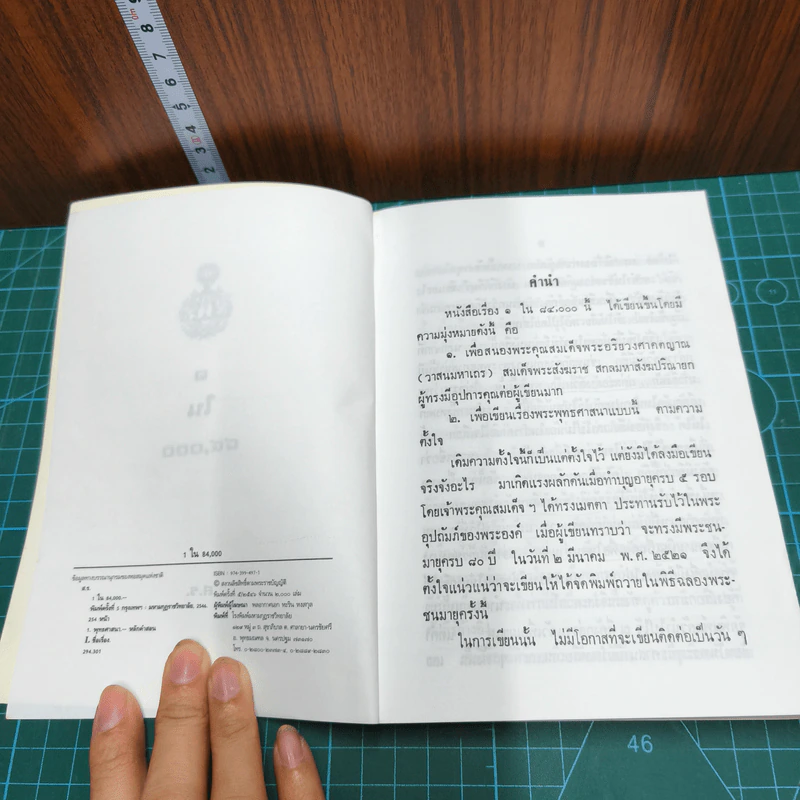 1 ใน 84,000
ข้อมูลทางบรรณานุกรมของหอสมุดแห่งชาติ
ส.ร.
1 ใน 84,000.--
พิมพ์ครั้งที่ 5 กรุงเทพฯ : มหามกุฏราชวิทยาลัย, 2546.
254 หน้า
1. พุทธศาสนา. -- หลักคำสอน
I. ชื่อเรื่อง
294.303
ISBN :
© สงวนลิขสิทธิ์ตามพระราชบัญญัติ
พิมพ์ครั้งที่ ๕/๒๕๔๖ จำนวน ๒,๐๐๐ เล่ม
ผู้พิมพ์ผู้โฆษณา
พิมพ์ที่ โรงพิมพ์มหามกุฏราชวิทยาลัย
คำนำ
หนังสือเรื่อง ๑ ใน ๘๔,๐๐๐ นี้ ได้เขียนขึ้นโดยมี
ความมุ่งหมายดังนี้ คือ
๑. เพื่อสนองพระคุณสมเด็จพระอริยวงศาคตญาณ
(วาสนมหาเถร) สมเด็จพระสังฆราช สกลมหาสังฆปริณายก
ผู้ทรงมีอุปการคุณต่อผู้เขียนมาก
๒. เพื่อเขียนเรื่องพระพุทธศาสนาแบบนี้ ตามความ
ตั้งใจ
เดิมความตั้งใจนี้ก็เป็นแต่ตั้งใจไว้ แต่ยังมิได้ลงมือเขียน
จริงจังอะไร มาเกิดแรงผลักดันเมื่อทำบุญอายุครบ ๕ รอบ
โดยเจ้าพระคุณสมเด็จ ฯ ได้ทรงเมตตา ประทานรับไว้ในพระ
อุปถัมภ์ของพระองค์ เมื่อผู้เขียนทราบว่า จะทรงมีพระชน-
มายุครบ ๘๐ ปี ในวันที่ ๒ มีนาคม พ.ศ. ๒๕๒๑ จึงได้
ตั้งใจแน่วแน่ว่าจะเขียนให้ได้จัดพิมพ์ถวายในพิธีฉลองพระ-
ชนมายุครั้งนี้
ในการเขียนนั้น ไม่มีโอกาสที่จะเขียนติดต่อเป็นวัน ๆ
46